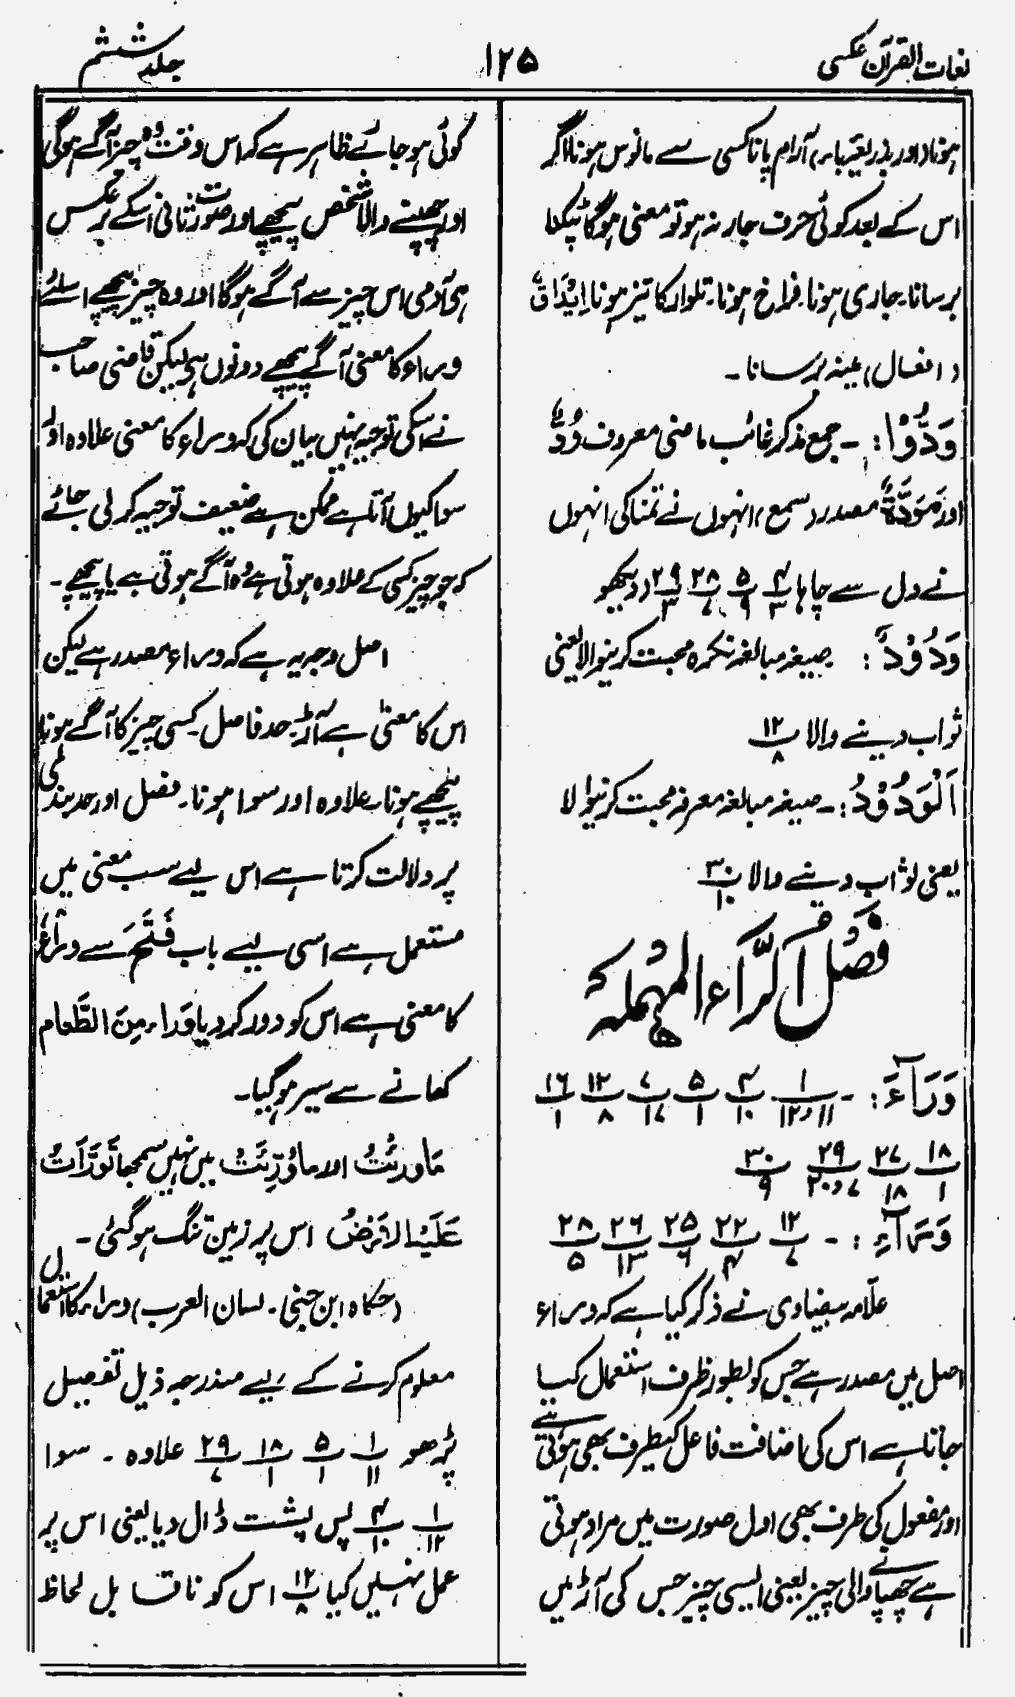 لغات القرآن عکسی
۱۲۵
جلد ششم
ہونا (اور بذریعہ باء) آرام پانا کسی سے مانوس ہونا اگر
اس کے بعد کوئی حرف جار نہ ہو تو معنی ہوگا ٹپکنا
برسانا۔ جاری ہونا۔ فراخ ہونا۔ تلوار کا تیز ہونا اِیْدَاقٌ
(افعال) مینہ برسانا۔
وَدُّوْا: ۔ جمع مذکر غائب ماضی معروف وُدٌّ
اور مَوَدَّةٌ مصدر (سمع) انہوں نے تمنا کی انہوں
نے دل سے چاہا ۴/۳ ۵/۹ ۲۸/۷ ۲۹/۳ (دیکھو
وَدُوْدٌ : صیغہ مبالغہ نکرہ محبت کرنیوالا یعنی
ثواب دینے والا ۱۲/۸
اَلْوَدُوْدُ :۔ صیغہ مبالغہ معرفہ محبت کرنیوالا
یعنی ثواب دینے والا ۳۰/۱۰
فصل الرّاء المہملہ
وَرَآءَ : ۔ ۱/۱۱و۱۲ ۴/۱۰ ۵/۱ ۷/۱۷ ۱۲/۸ ۱۶/۱
۱۸/۱ ۲۷/۱۸ ۲۹/۷و۲۰ ۳۰/۹
وَرَآءِ : ۔ ۱۲/۷ ۲۲/۴ ۲۵/۶ ۲۶/۱۳ ۲۸/۵
علّامہ بیضاوی نے ذکر کیا ہے کہ وراء
اصل میں مصدر ہے جس کو بطور ظرف استعمال کیا
جاتا ہے اس کی اضافت فاعل کیطرف بھی ہوتی ہے
اور مفعول کی طرف بھی اول صورت میں مراد ہوتی
ہے چھپانے والی چیز یعنی ایسی چیز جس کی آڑ میں
کوئی ہو جائے ظاہر ہے کہ اس وقت وہ چیز آگے ہوگی
اور چھپنے والا شخص پیچھے اور صورت ثانی اسکے برعکس
ہی آدمی اس چیز سے آگے ہوگا اور وہ چیز پیچھے اسلئے
وراء کا معنی آگے پیچھے دونوں ہی لیکن قاضی صاحب
نے اسکی توجیہ نہیں بیان کی کہ وراء کا معنی علاوہ اور
سوا کیوں آتا ہے ممکن ہے ضعیف توجیہ کر لی جائے
کہ جو چیز کسی کے علاوہ ہوتی ہے وہ آگے ہوتی ہے یا پیچھے۔
اصل وجہ یہ ہے کہ وراء مصدر ہے لیکن
اس کا معنیٰ ہے آڑ۔ حد فاصل۔ کسی چیز کا آگے ہونا
پیچھے ہونا۔ علاوہ اور سوا ہونا۔ فصل اور حد بندی
پر دلالت کرتا ہے اس لیے سب معنی میں
مستعمل ہے اسی لیے باب فَتَحَ سے وَرَأَ
کا معنی ہے اس کو دور کر دیا وَرَاءَ مِنَ الطَّعَام
کھانے سے سیر ہو گیا۔
مَا وُرِئْتُ اور ما وُرِّئْتُ میں نہیں سمجھا تَوَرَّأَتْ
عَلَیْہِ الْاَرْضُ اس پر زمین تنگ ہو گئی۔
(حکاہ ابن جنی۔ لسان العرب) وراء کا استعمال
معلوم کرنے کے لیے مندرجہ ذیل تفصیل
پڑھو ۱/۱۱ ۵/۱ ۱۸/۱ ۲۹/۷ علاوہ ۔ سوا
۱/۱۲ ۴/۱۰ پس پشت ڈال دیا یعنی اس پر
عمل نہیں کیا ۱۲/۸ اس کو ناقابل لحاظ